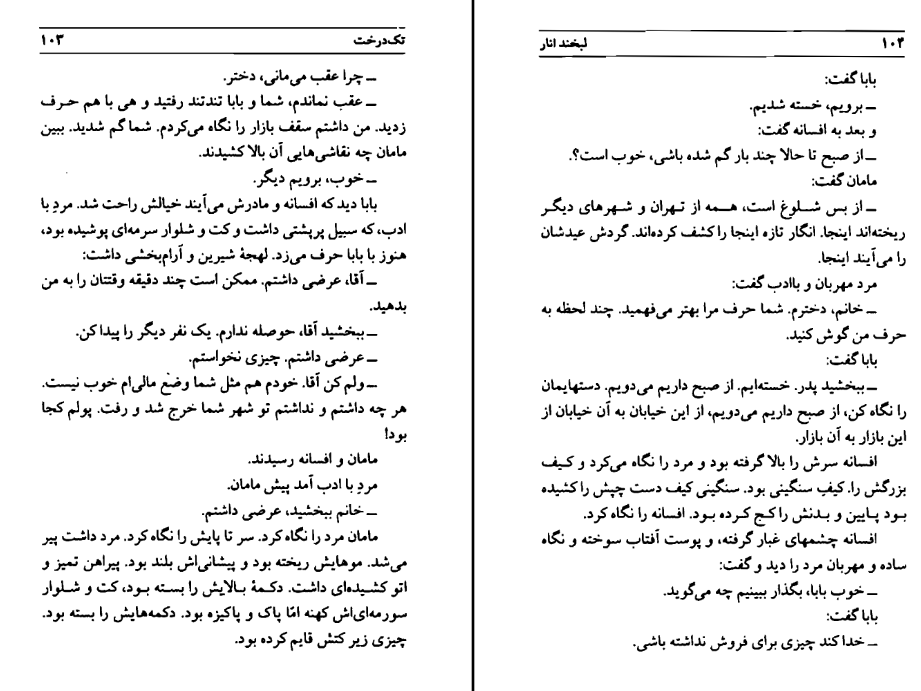 تک‌درخت ۱۰۳
ــ چرا عقب می‌مانی، دختر.
ــ عقب نماندم، شما و بابا تندتند رفتید و هی با هم حرف
زدید. من داشتم سقف بازار را نگاه می‌کردم. شما گم شدید. ببین
مامان چه نقاشی‌هایی آن بالا کشیدند.
ــ خوب، برویم دیگر.
بابا دید که افسانه و مادرش می‌آیند خیالش راحت شد. مردِ با
ادب، که سبیل پرپشتی داشت و کت و شلوار سرمه‌ای پوشیده بود،
هنوز با بابا حرف می‌زد. لهجهٔ شیرین و آرام‌بخشی داشت:
ــ آقا، عرضی داشتم. ممکن است چند دقیقه وقتتان را به من
بدهید.
ــ ببخشید آقا، حوصله ندارم. یک نفر دیگر را پیدا کن.
ــ عرضی داشتم. چیزی نخواستم.
ــ ولم کن آقا. خودم هم مثل شما وضع مالی‌ام خوب نیست.
هر چه داشتم و نداشتم تو شهر شما خرج شد و رفت. پولم کجا
بود!
مامان و افسانه رسیدند.
مردِ با ادب آمد پیش مامان.
ــ خانم ببخشید، عرضی داشتم.
مامان مرد را نگاه کرد. سر تا پایش را نگاه کرد. مرد داشت پیر
می‌شد. موهایش ریخته بود و پیشانی‌اش بلند بود. پیراهن تمیز و
اتو کشیده‌ای داشت. دکمهٔ بالایش را بسته بود، کت و شلوار
سورمه‌ای‌اش کهنه امّا پاک و پاکیزه بود. دکمه‌هایش را بسته بود.
چیزی زیر کتش قایم کرده بود.
۱۰۴ لبخند انار
بابا گفت:
ــ برویم، خسته شدیم.
و بعد به افسانه گفت:
ــ از صبح تا حالا چند بار گم شده باشی، خوب است؟.
مامان گفت:
ــ از بس شلوغ است، همه از تهران و شهرهای دیگر
ریخته‌اند اینجا. انگار تازه اینجا را کشف کرده‌اند. گردش عیدشان
را می‌آیند اینجا.
مرد مهربان و باادب گفت:
ــ خانم، دخترم. شما حرف مرا بهتر می‌فهمید. چند لحظه به
حرف من گوش کنید.
بابا گفت:
ــ ببخشید پدر. خسته‌ایم. از صبح داریم می‌دویم. دستهایمان
را نگاه کن، از صبح داریم می‌دویم، از این خیابان به آن خیابان از
این بازار به آن بازار.
افسانه سرش را بالا گرفته بود و مرد را نگاه می‌کرد و کیف
بزرگش را. کیفِ سنگینی بود. سنگینی کیف دست چپش را کشیده
بود پایین و بدنش را کج کرده بود. افسانه را نگاه کرد.
افسانه چشمهای غبار گرفته، و پوست آفتاب سوخته و نگاه
ساده و مهربان مرد را دید و گفت:
ــ خوب بابا، بگذار ببینیم چه می‌گوید.
بابا گفت:
ــ خدا کند چیزی برای فروش نداشته باشی.